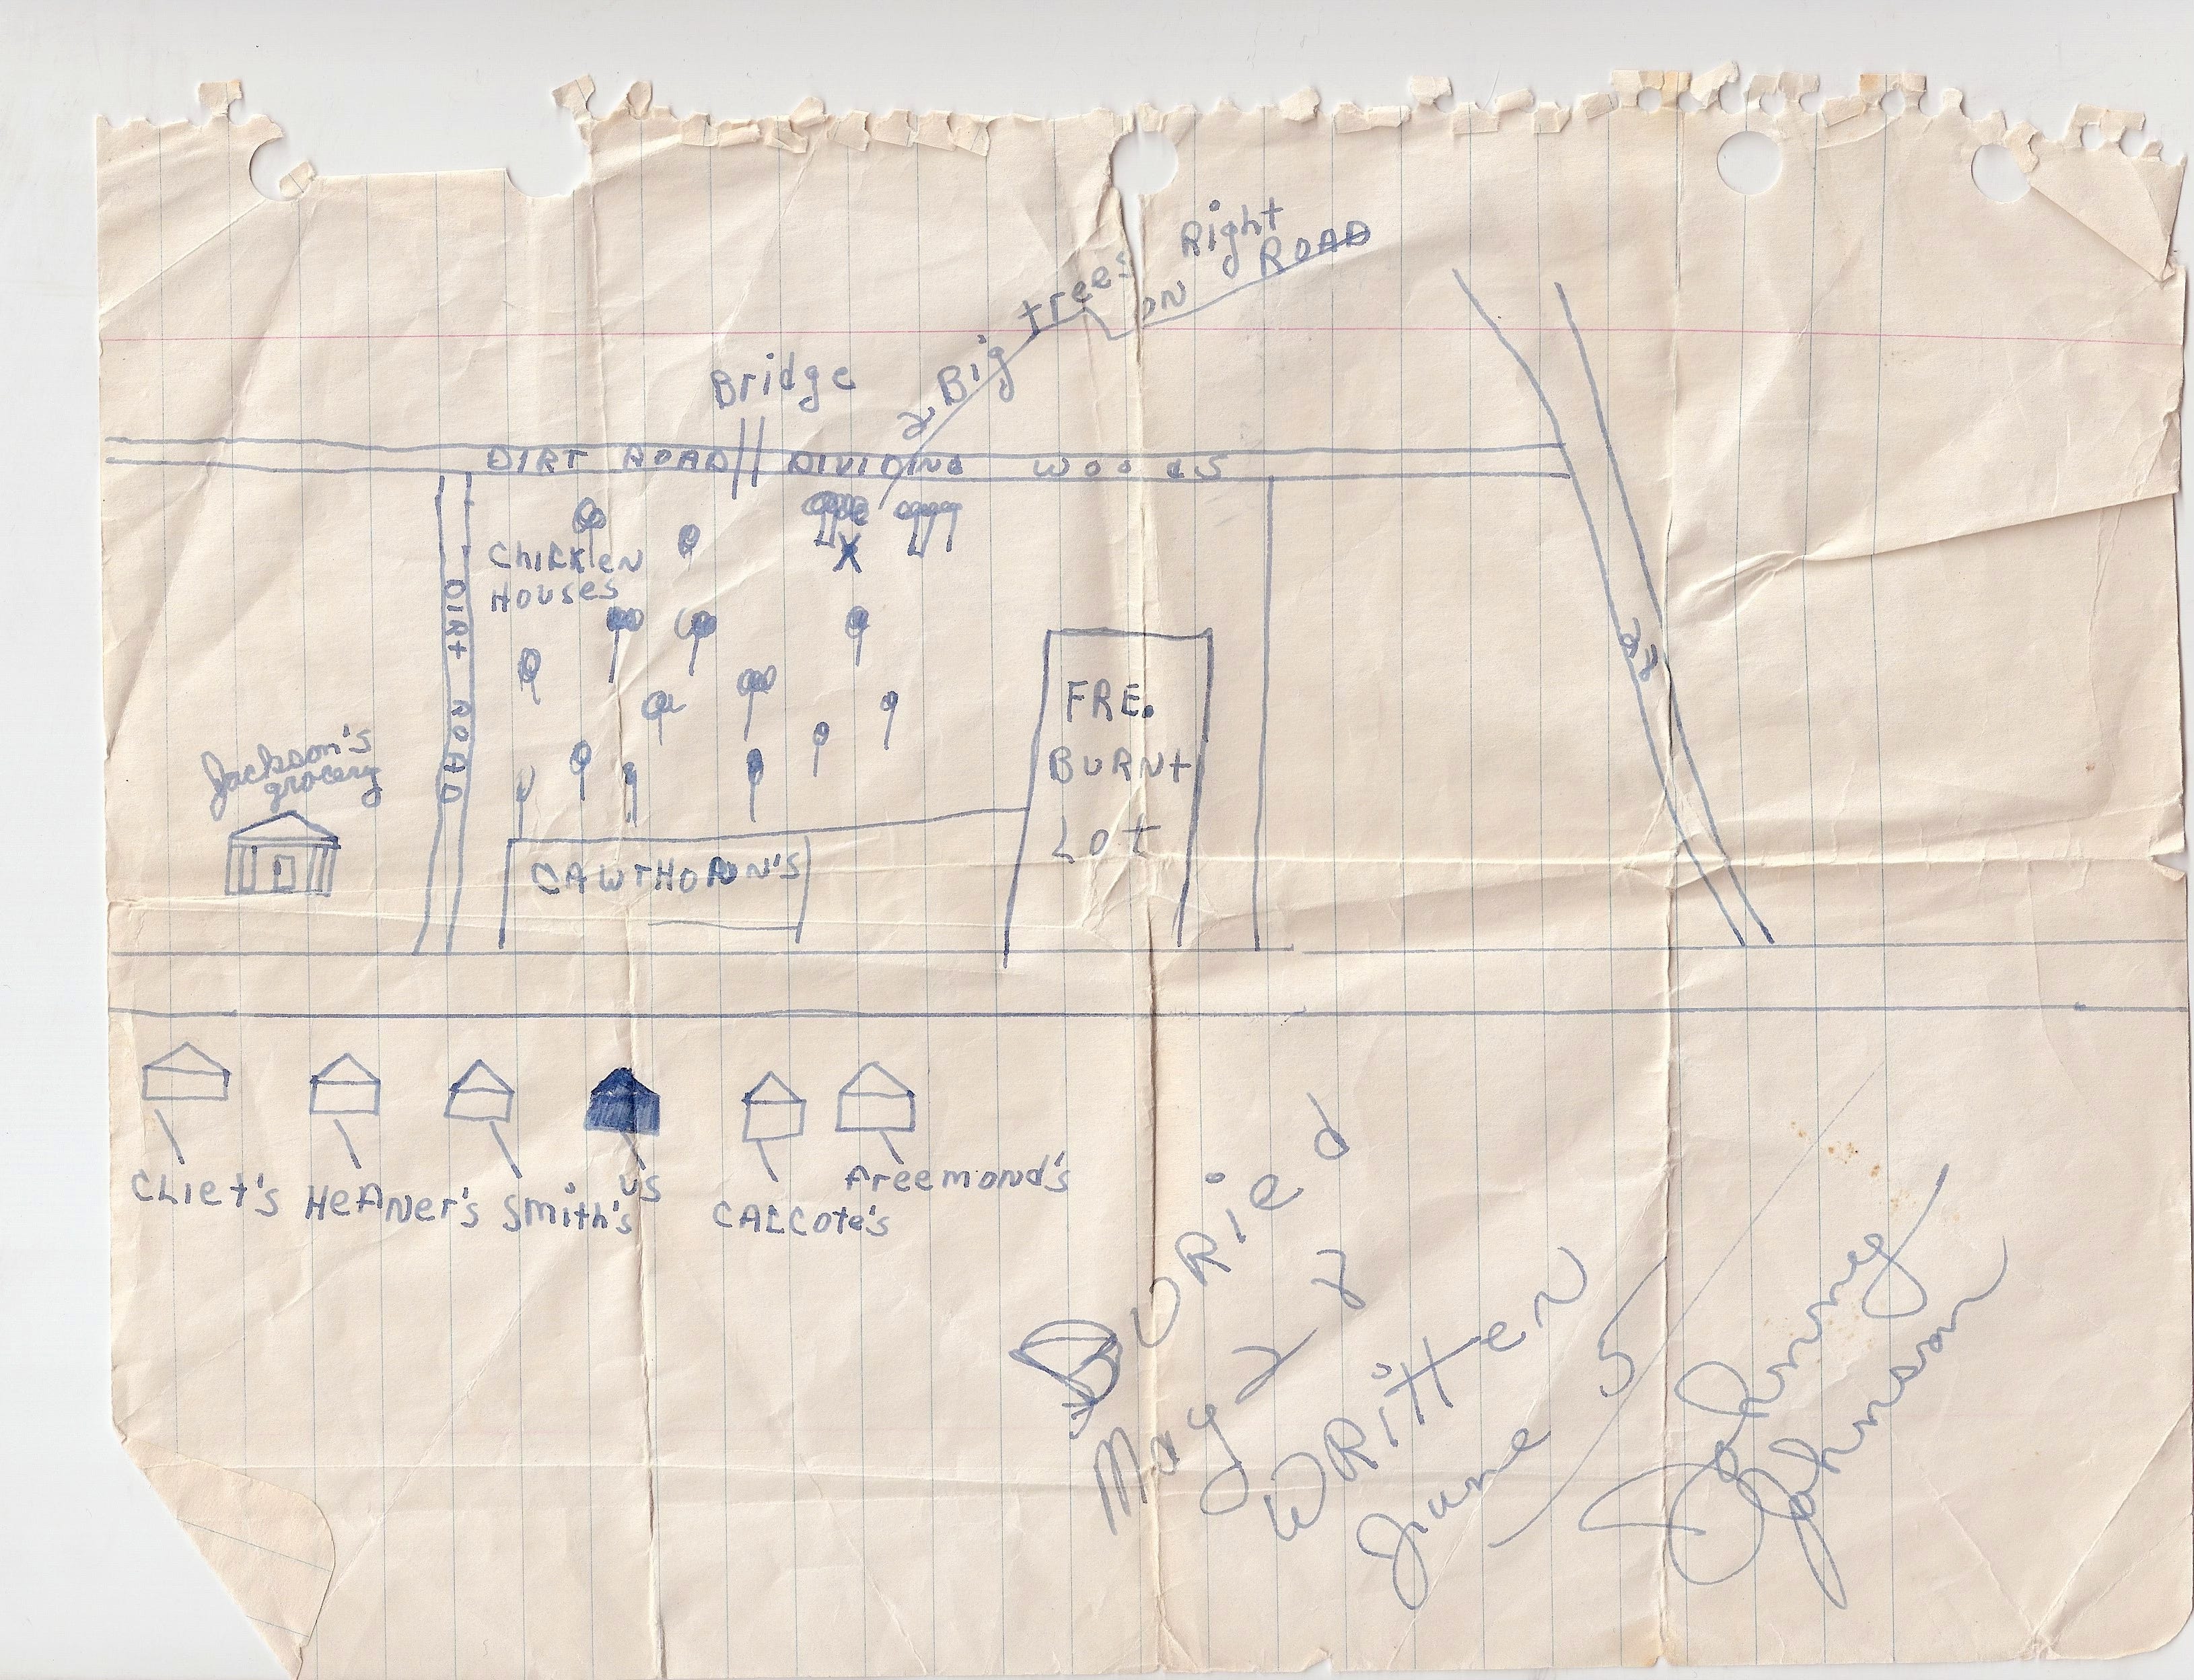 Right
2 Big trees on ROAD
Bridge
DIRT ROAD DIVIDING WOODS
Chicken
Houses
DIRt ROAD
Jackson's
grocery
FRE.
BURNt
Lot
CAWTHORN'S
CLiet's
HeANer's
Smith's
us
CALCote's
Freemond's
BURied
May 22
WRitten
June 5
Johnny
Johnson